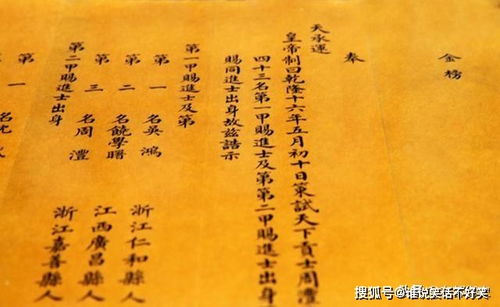 金榜
奉
天承運
皇帝制曰乾隆十六年五月初十日策試天下貢士周澧
四十三名第一甲賜進士及第第二甲賜進士出身
賜同進士出身故茲誥示
第一甲賜進士及第
第一名吳鴻 浙江仁和縣人
第二名饒學曙 江西廣昌縣人
第三名周澧 浙江嘉善縣人
第二甲賜進士出身
第一名沈
搜狐号@谁说笑话不好笑